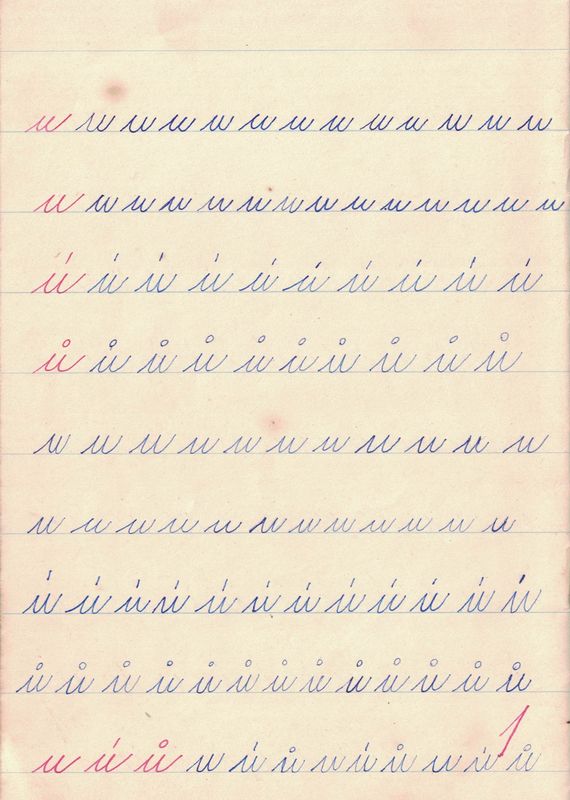 u u u u u u u u u u u u u
u u u u u u u u u u u u u u
ú ú ú ú ú ú ú ú ú ú
ů ů ů ů ů ů ů ů ů ů
u u u u u u u u u u u
u u u u u u u u u u u u
ú ú ú ú ú ú ú ú ú ú ú ú
ů ů ů ů ů ů ů ů ů ů ů ů ů
u ú ů u ú ů u ú ů u ú ů 1